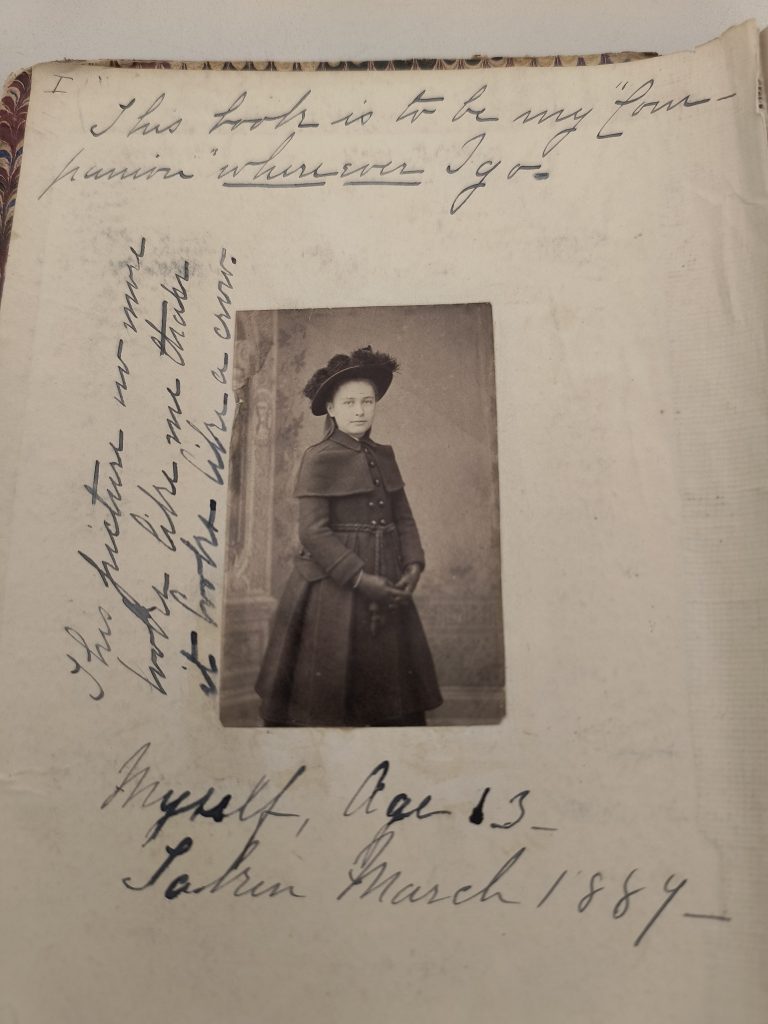 I
This book is to be my "Com-
panion" where ever I go.
This picture no more
looks like me than
it looks like a crow.
Myself, Age 13_
Taken March